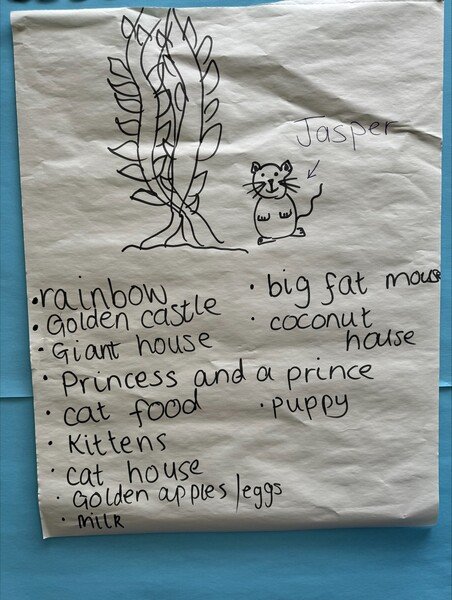 Jasper
• rainbow
• Golden castle
• Giant house
• big fat mouse
• coconut
house
• Princess and a prince
• cat food
• puppy
• Kittens
• cat house
• Golden apples/eggs
• milk